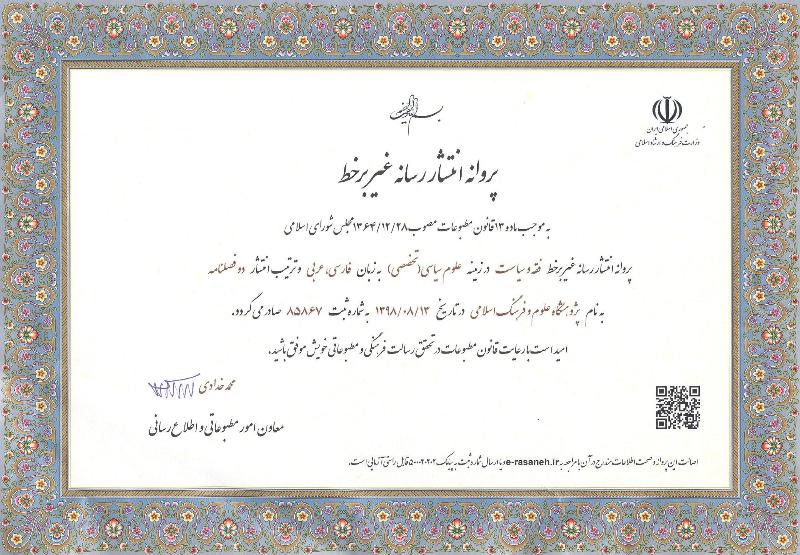 بسم الله الرحمن الرحیم
جمهوری اسلامی ایران
وزارت فرهنگ و ارشاد اسلامی
پروانه انتشار رسانه غیر برخط
به موجب ماده ۱۳ قانون مطبوعات مصوب ۱۳۶۴/۱۲/۲۸ مجلس شورای اسلامی
پروانه انتشار رسانه غیر برخط فقه و سیاست در زمینه علوم سیاسی (تخصصی) به زبان فارسی، عربی و ترتیب انتشار دو فصلنامه
به نام پژوهشگاه علوم و فرهنگ اسلامی در تاریخ ۱۳۹۸/۰۸/۱۳ به شماره ثبت ۸۵۸۶۷ صادر می گردد.
امید است با رعایت قانون مطبوعات در تحقق رسالت فرهنگی و مطبوعاتی خویش موفق باشید.
محمد خدادی
معاون امور مطبوعاتی و اطلاع رسانی
اصالت این پروانه و صحت اطلاعات مندرج در آن با مراجعه به e-rasaneh.ir و یا ارسال شماره ثبت به پیامک ۵۰۰۰۲۰۲۰۲ قابل راستی آزمایی است.